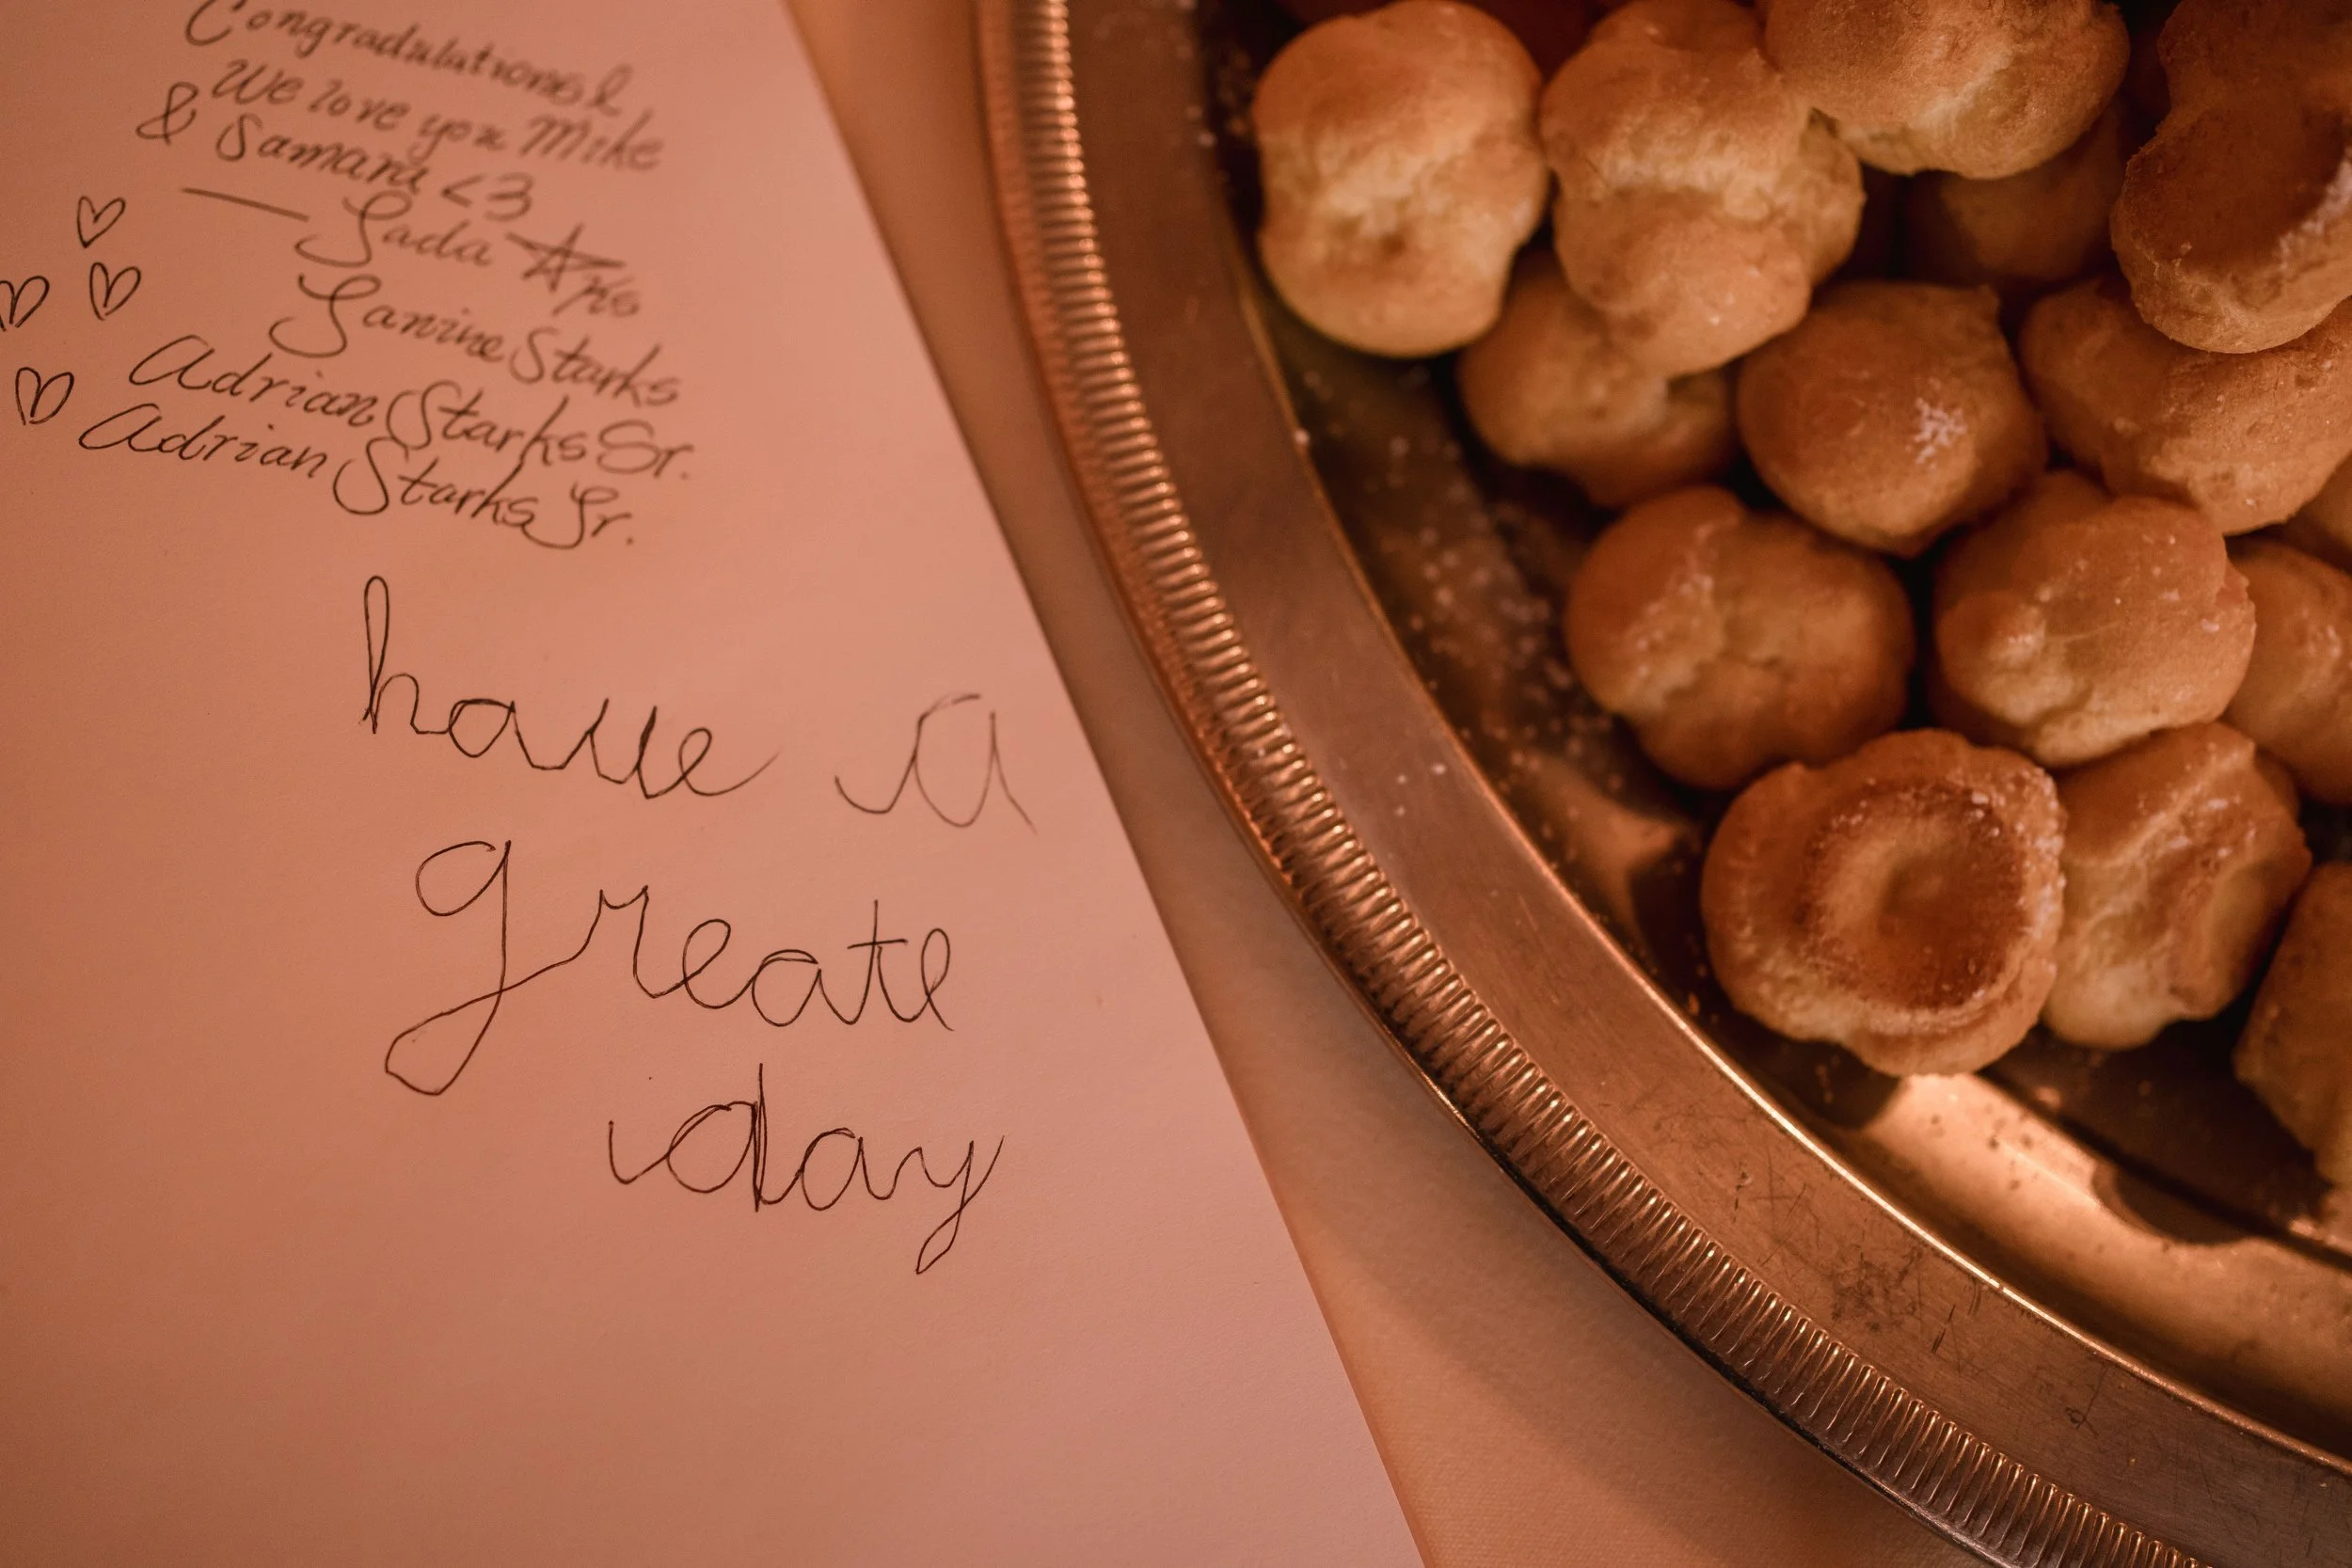 Congradulations!
We love you Mike
& Samara <3
— Jada
Janine Starks
Adrian Starks Sr.
Adrian Starks Jr.
have a
greate
day